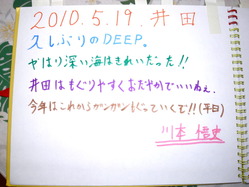 2010.5.19.井田
久しぶりのDEEP。
やはり深い海はきれいだった!!
井田はもぐりやすくおだやかでいいねぇ.
今年はこれからガンガンもぐっていくで!!(平日)
川本 悟史